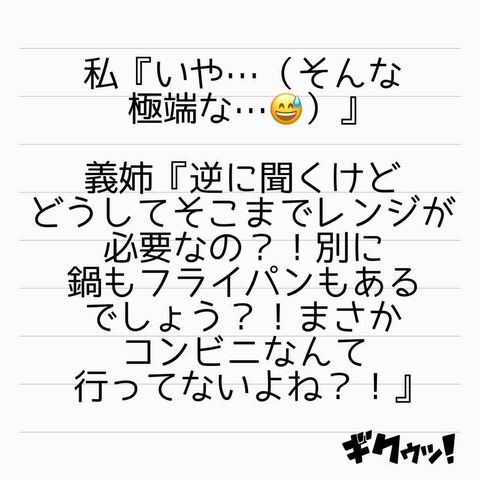 私『いや…（そんな
極端な…😅）』
義姉『逆に聞くけど
どうしてそこまでレンジが
必要なの？！別に
鍋もフライパンもある
でしょう？！まさか
コンビニなんて
行ってないよね？！』
ギクゥッ！